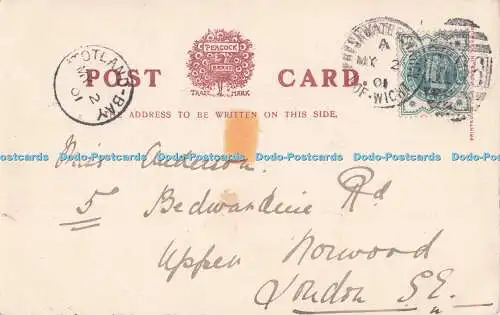 PEACOCK
BRAND
POST CARD.
TRADE MARK
THE ADDRESS TO BE WRITTEN ON THIS SIDE.
TOTLAND-BAY
MY 2
01
A
MY 2
01
OF-WIGHT
Dodo-Postcards Dodo-Postcards Dodo-Postcards Dodo-Postcards Dodo-Postcards Dodo-Postcards
Miss Anderson.
5 Bedwardine Rd
Upper Norwood
London S.E.